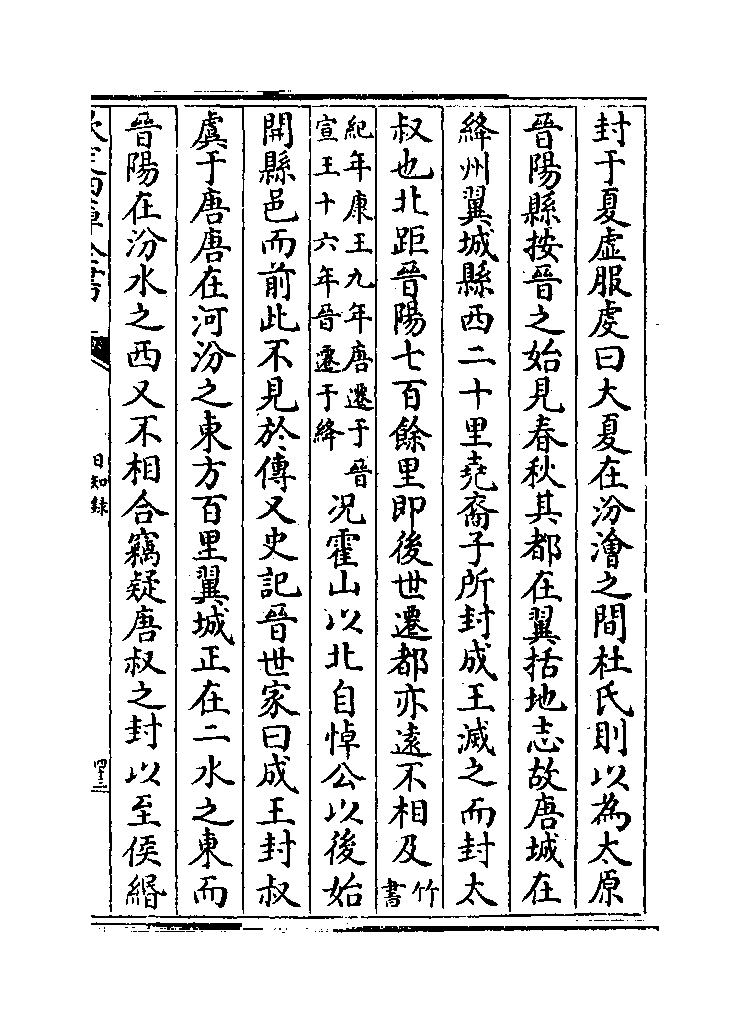 封于夏虛服虔曰大夏在汾澮之間杜氏則以為太原
晉陽縣按晉之始見春秋其都在翼括地志故唐城在
絳州翼城縣西二十里堯裔子所封成王滅之而封太
叔也北距晉陽七百餘里即後世遷都亦逺不相及竹書
紀年康王九年唐遷于晉
宣王十六年晉遷于絳
况霍山以北自悼公以後始
開縣邑而前此不見於傳又史記晉世家曰成王封叔
虞于唐唐在河汾之東方百里翼城正在二水之東而
晉陽在汾水之西又不相合竊疑唐叔之封以至侯緡
日知録